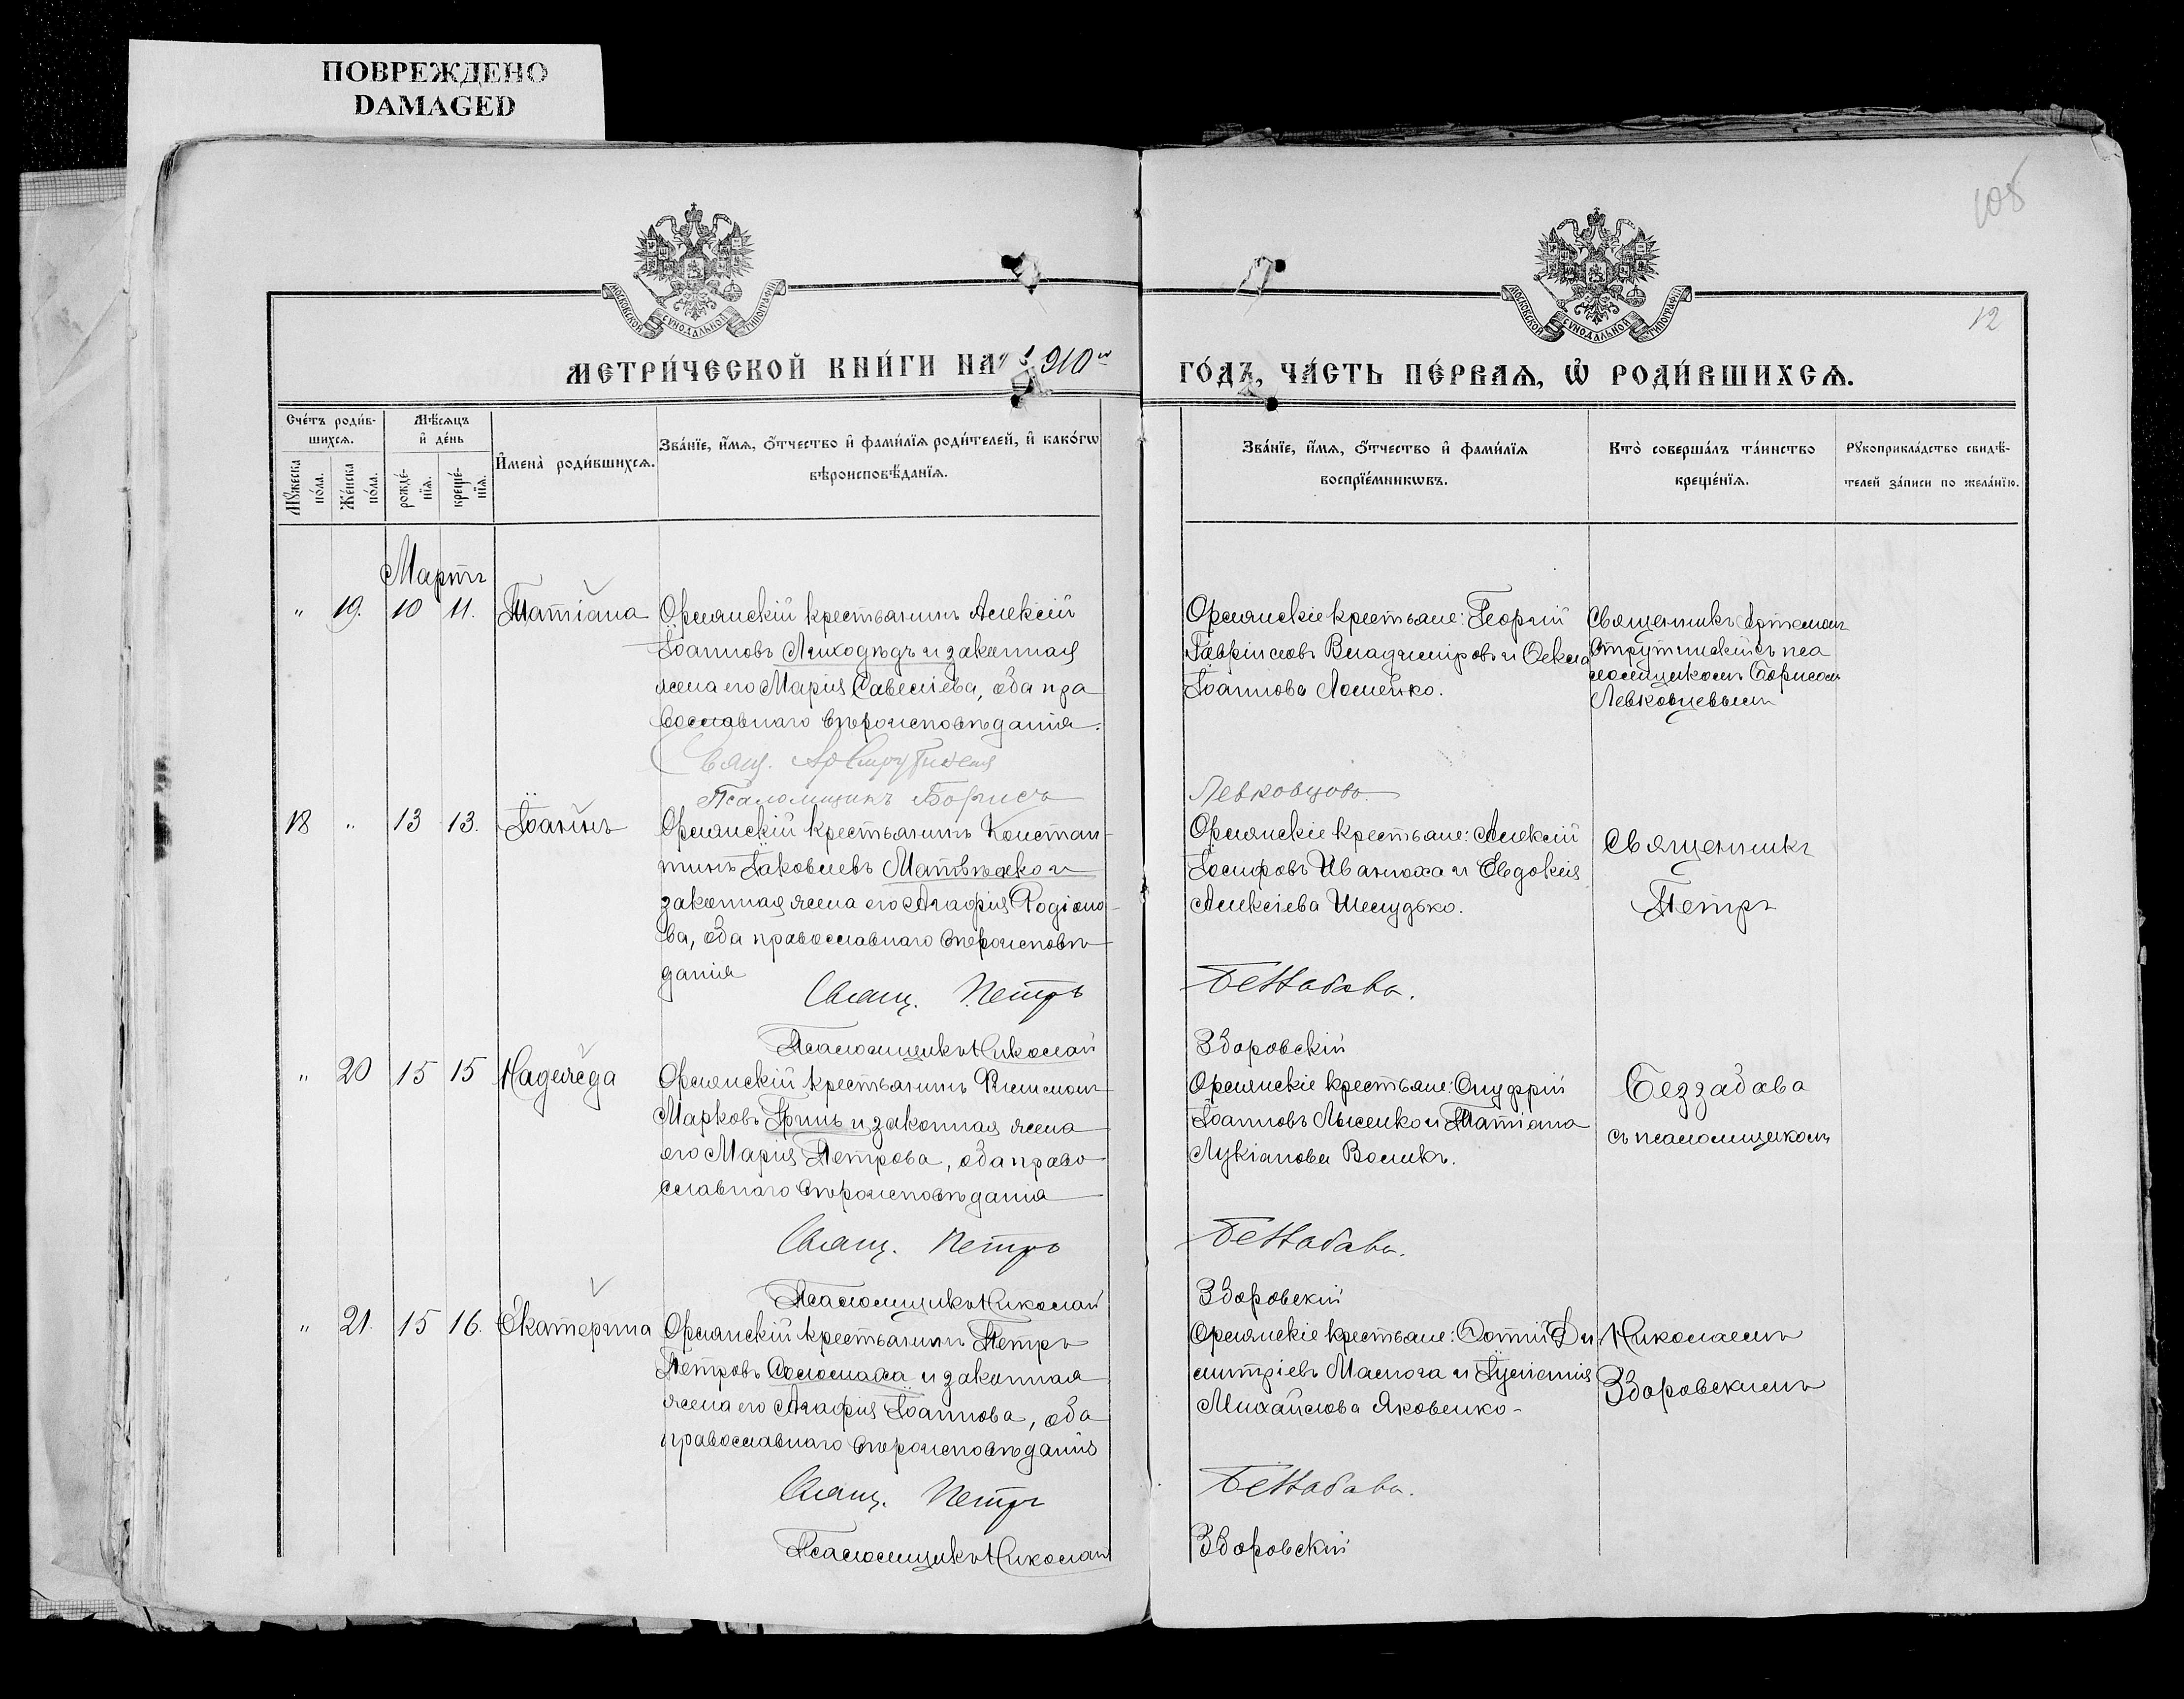 ПОВРЕЖДЕНО
DAMAGED
108
12
МОСКОВСКОЙ СѴНОДАЛЬНОЙ ТИПОГРАФІИ
МОСКОВСКОЙ СѴНОДАЛЬНОЙ ТИПОГРАФІИ
МЕТРИ́ЧЕСКОЙ КНИ́ГИ НА 1910й
ГО́ДЪ, ЧА́СТЬ ПЕ́РВАЯ, Ѽ РОДИ́ВШИХСЯ.
Сче́тъ роди́вшихся.
Мꙋ́жеска по́ла.
Же́нска по́ла.
Мѣ́сяцъ и҆ де́нь
рожде́нїя.
креще́нїя.
И҆мена̀ роди́вшихся.
Зва́нїе, и҆́мя, ѻ҆́тчество и҆ фами́лїя роди́телей, и҆ како́гѡ
вѣроисповѣ́данїя.
Зва́нїе, и҆́мя, ѻ҆́тчество и҆ фами́лїя
воспрїе́мникѡвъ.
Кто̀ соверша́лъ та́инство
креще́нїя.
Рꙋкоприкла́дство свидѣ́-
телей за́писи по жела́нїю.
Мартъ
" 19. 10 11. Татіана
Орлянскій крестьянинъ Алексій
Іоанновъ Лиходѣдъ и законная
жена его Марія Савеліева, оба пра
вославнаго вѣроисповѣданія.
Свящ. Ар Струтинскій
Псаломщикъ Борисъ
Орлянскіе крестьяне: Георгій
Гавріиловъ Владиміровъ и Оекла
Іоаннова Ломейко.
Левковцовъ
Священникъ Артемонъ
Струтинскій съ пса
ломщикомъ Борисомъ
Левковцевымъ
18 " 13 13. Іоаннъ
Орлянскій крестьянинъ Констан-
тинъ Іаковлевъ Матвѣйко и
законная жена его Агафія Родіоно-
ва, оба православнаго вѣроисповѣ
данія
Свящ. Петръ
Псаломщикъ Николай
Орлянскіе крестьяне: Алексій
Іосифовъ Иванюха и Евдокія
Алексіева Шелудько.
Беззабава.
Здоровскій
Священникъ
Петръ
" 20 15 15 Надежда
Орлянскій крестьянинъ Филимонъ
Марковъ Гринь и законная жена
его Марія Петрова, оба право
славнаго вѣроисповѣданія
Свящ. Петръ
Псаломщикъ Николай
Орлянскіе крестьяне: Онуфрій
Іоанновъ Лысенко и Татіана
Лукіанова Воликъ.
Беззабава.
Здоровскій
Беззабава
съ псаломщикомъ
" 21. 15 16. Екатерина
Орлянскій крестьянинъ Петръ
Петровъ Соломаха и законная
жена его Агафія Іоаннова, оба
православнаго вѣроисповѣданія
Свящ. Петръ
Псаломщикъ Николай
Орлянскіе крестьяне: Фотій Ди
митріевъ Малюга и Іуліанія
Михайлова Яковенко-
Беззабава.
Здоровскій
Николаемъ
Здоровскимъ